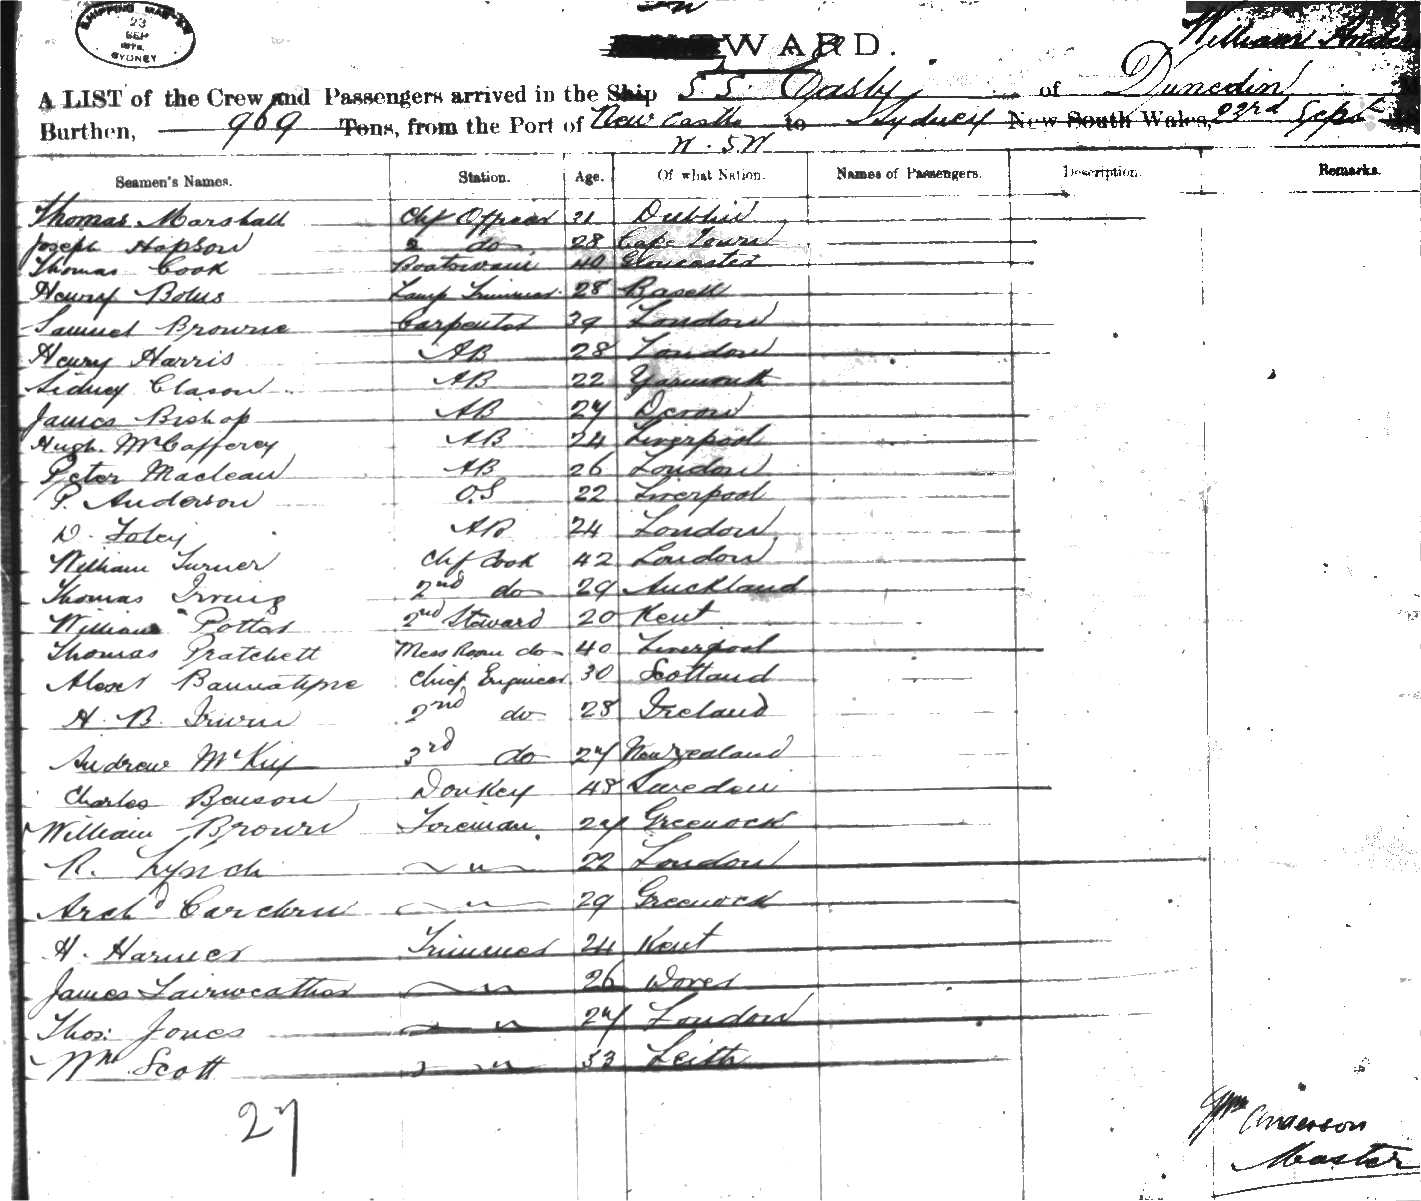 SHIPPING MASTER
23
SEP
SYDNEY
WARD.
William Ander
A LIST of the Crew and Passengers arrived in the Ship SS Easby of Dunedin
Burthen, 969 Tons, from the Port of New Castle to Sydney New South Wales, 23rd Sept
N.SW
Seamen's Names. Station. Age. Of what Nation. Names of Passengers. Description. Remarks.
Thomas Marshall Chf Officer 31 Dublin
Joseph Hopson 2 do 28 Cape Town
Thomas Cook Boatswain 40 Gloucester
Henry Bolus Lamp Trimmer 28
Samuel Browne Carpenter 39 London
Henry Harris AB 28 London
Sidney Clason AB 22 Yarmouth
James Bishop AB 27 Devon
Hugh McCafferey AB 24 Liverpool
Peter Maclean AB 26 London
P. Anderson O.S 22 Liverpool
D. Foley AB 24 London
William Turner Chf Cook 42 London
Thomas Irving 2nd do 29 Auckland
William Potter 2nd Steward 20 Kent
Thomas Pratchett Mess Room do 40 Liverpool
Alexr Bannatyne Chief Engineer 30 Scotland
H. B. Irwin 2nd do 28 Ireland
Andrew McKi 3rd do 27 New Zealand
Charles Benson Donkey 48 Sweden
William Brown Foreman 27 Greenock
R. Lynch " 22 London
Archd " 29 Greenock
H. Harmer Trimmer 24 Kent
James Fairweather " 26 Dover
Thos: Jones " 27 London
Wm Scott " 33 Leith
27
Wm Anderson
Master